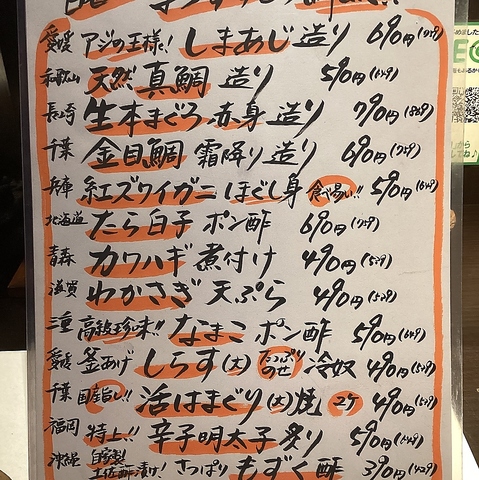 愛媛 アジの王様! しまあじ 造り 690円(759)
和歌山 天然 真鯛 造り 590円(649)
長崎 生本まぐろ 赤身 造り 790円(869)
千葉 金目鯛 霜降り 造り 690円(759)
兵庫 紅ズワイガニ ほぐし身 食べ易い!! 590円(649)
北海道 たら白子 ポン酢 690円(759)
青森 カワハギ 煮付け 490円(539)
滋賀 わかさぎ 天ぷら 490円(539)
三重 高級珍味!! なまこ ポン酢 590円(649)
愛媛 釜あげ しらす(大) たっぷりのせ 冷奴 490円(539)
千葉 国産旨し!! 活はまぐり(大)焼 2ケ 490円(539)
福岡 特上!! 辛子明太子 炙り 590円(649)
沖縄 自家製 土佐酢漬け! さっぱり もずく酢 390円(429)